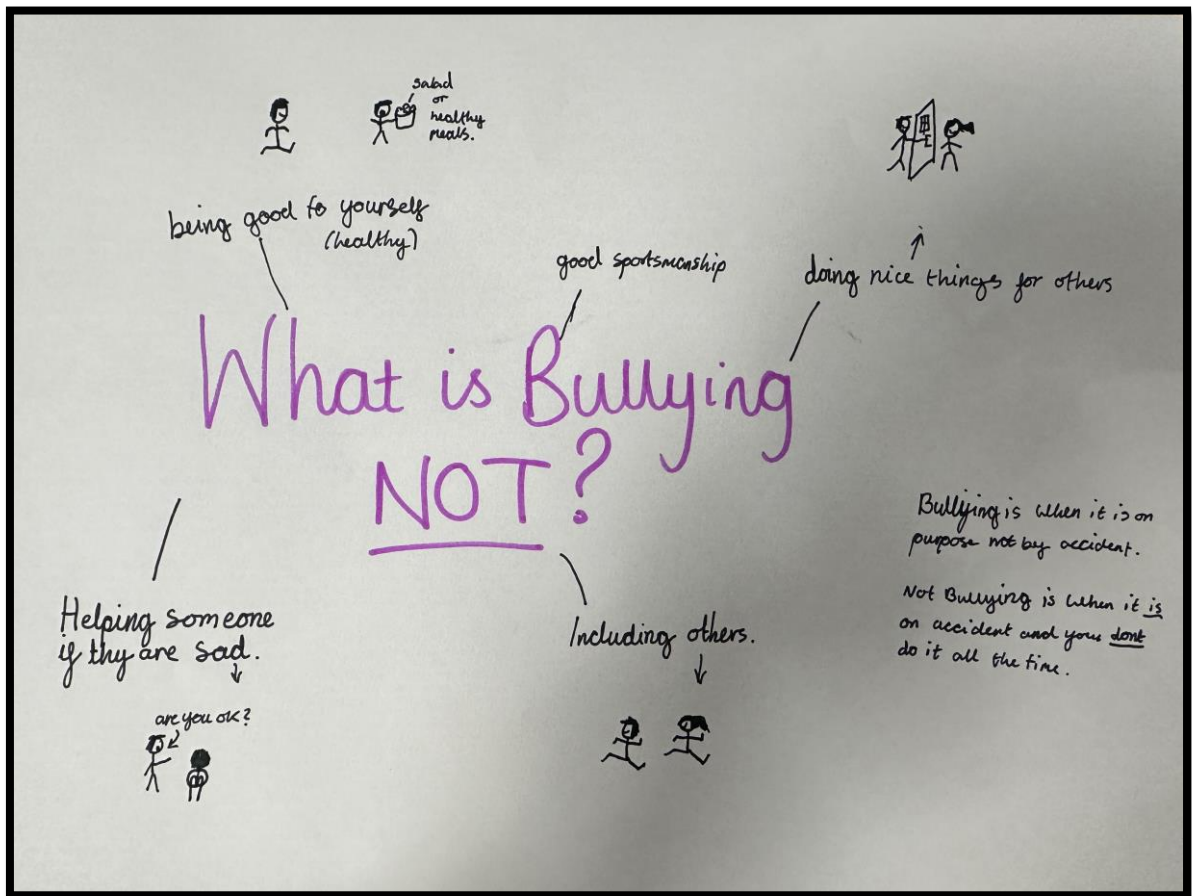 salad
or
healthy
meals.
being good to yourself
(healthy)
good sportsmanship
doing nice things for others
What is Bullying
NOT?
Bullying is when it is on
purpose not by accident.
Not Bullying is when it is
on accident and you dont
do it all the time.
Helping someone
if thy are sad.
are you ok?
Including others.